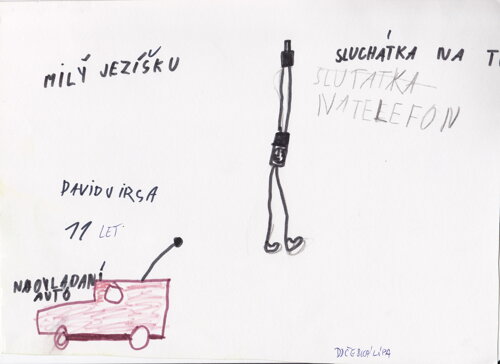 MILÝ JEZÍŠKU
SLUCHÁTKA NA T
SLUTATKA
NATELEFON
DAVIDVIRGA
11 LET
NAOVLADANÍ
AUTO
DDČESKÁLÍPA